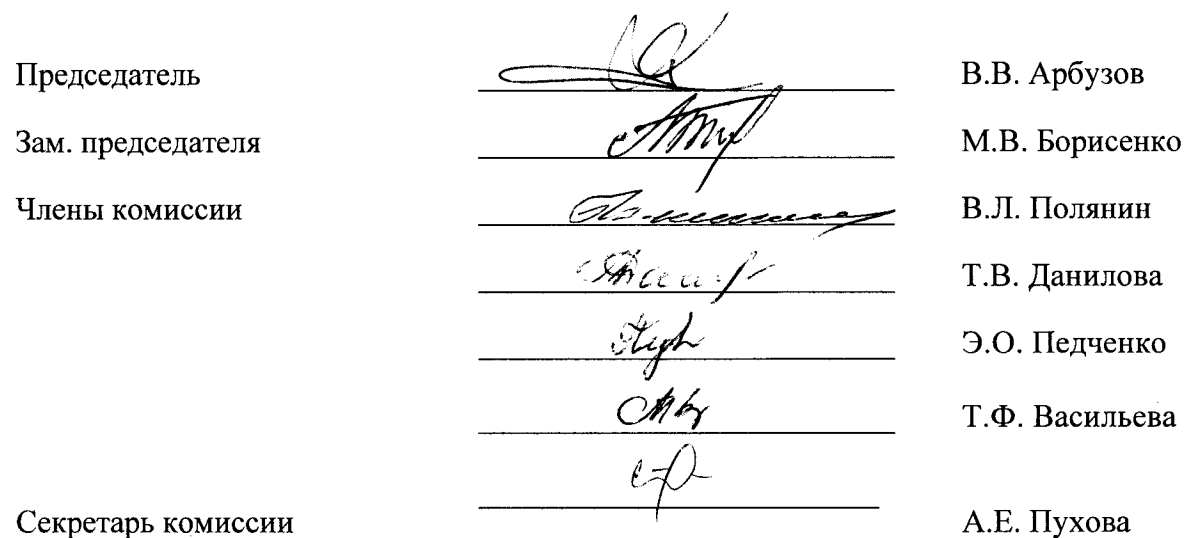 Председатель В.В. Арбузов
Зам. председателя М.В. Борисенко
Члены комиссии В.Л. Полянин
Т.В. Данилова
Э.О. Педченко
Т.Ф. Васильева
Секретарь комиссии А.Е. Пухова